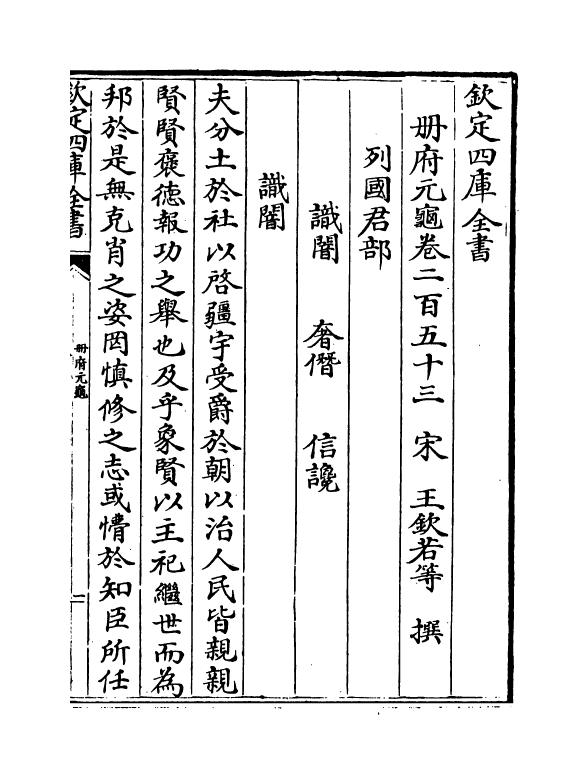 欽定四庫全書
册府元龜卷二百五十三 宋 王欽若等 撰
列國君部
識闇 奢僭 信讒
識闇
夫分土於社以啓疆宇受爵於朝以治人民皆親親
賢賢襃德報功之舉也及乎象賢以主祀繼世而為
邦於是無克肖之姿罔慎修之志或懵於知臣所任
欽定四庫全書
册府元龜